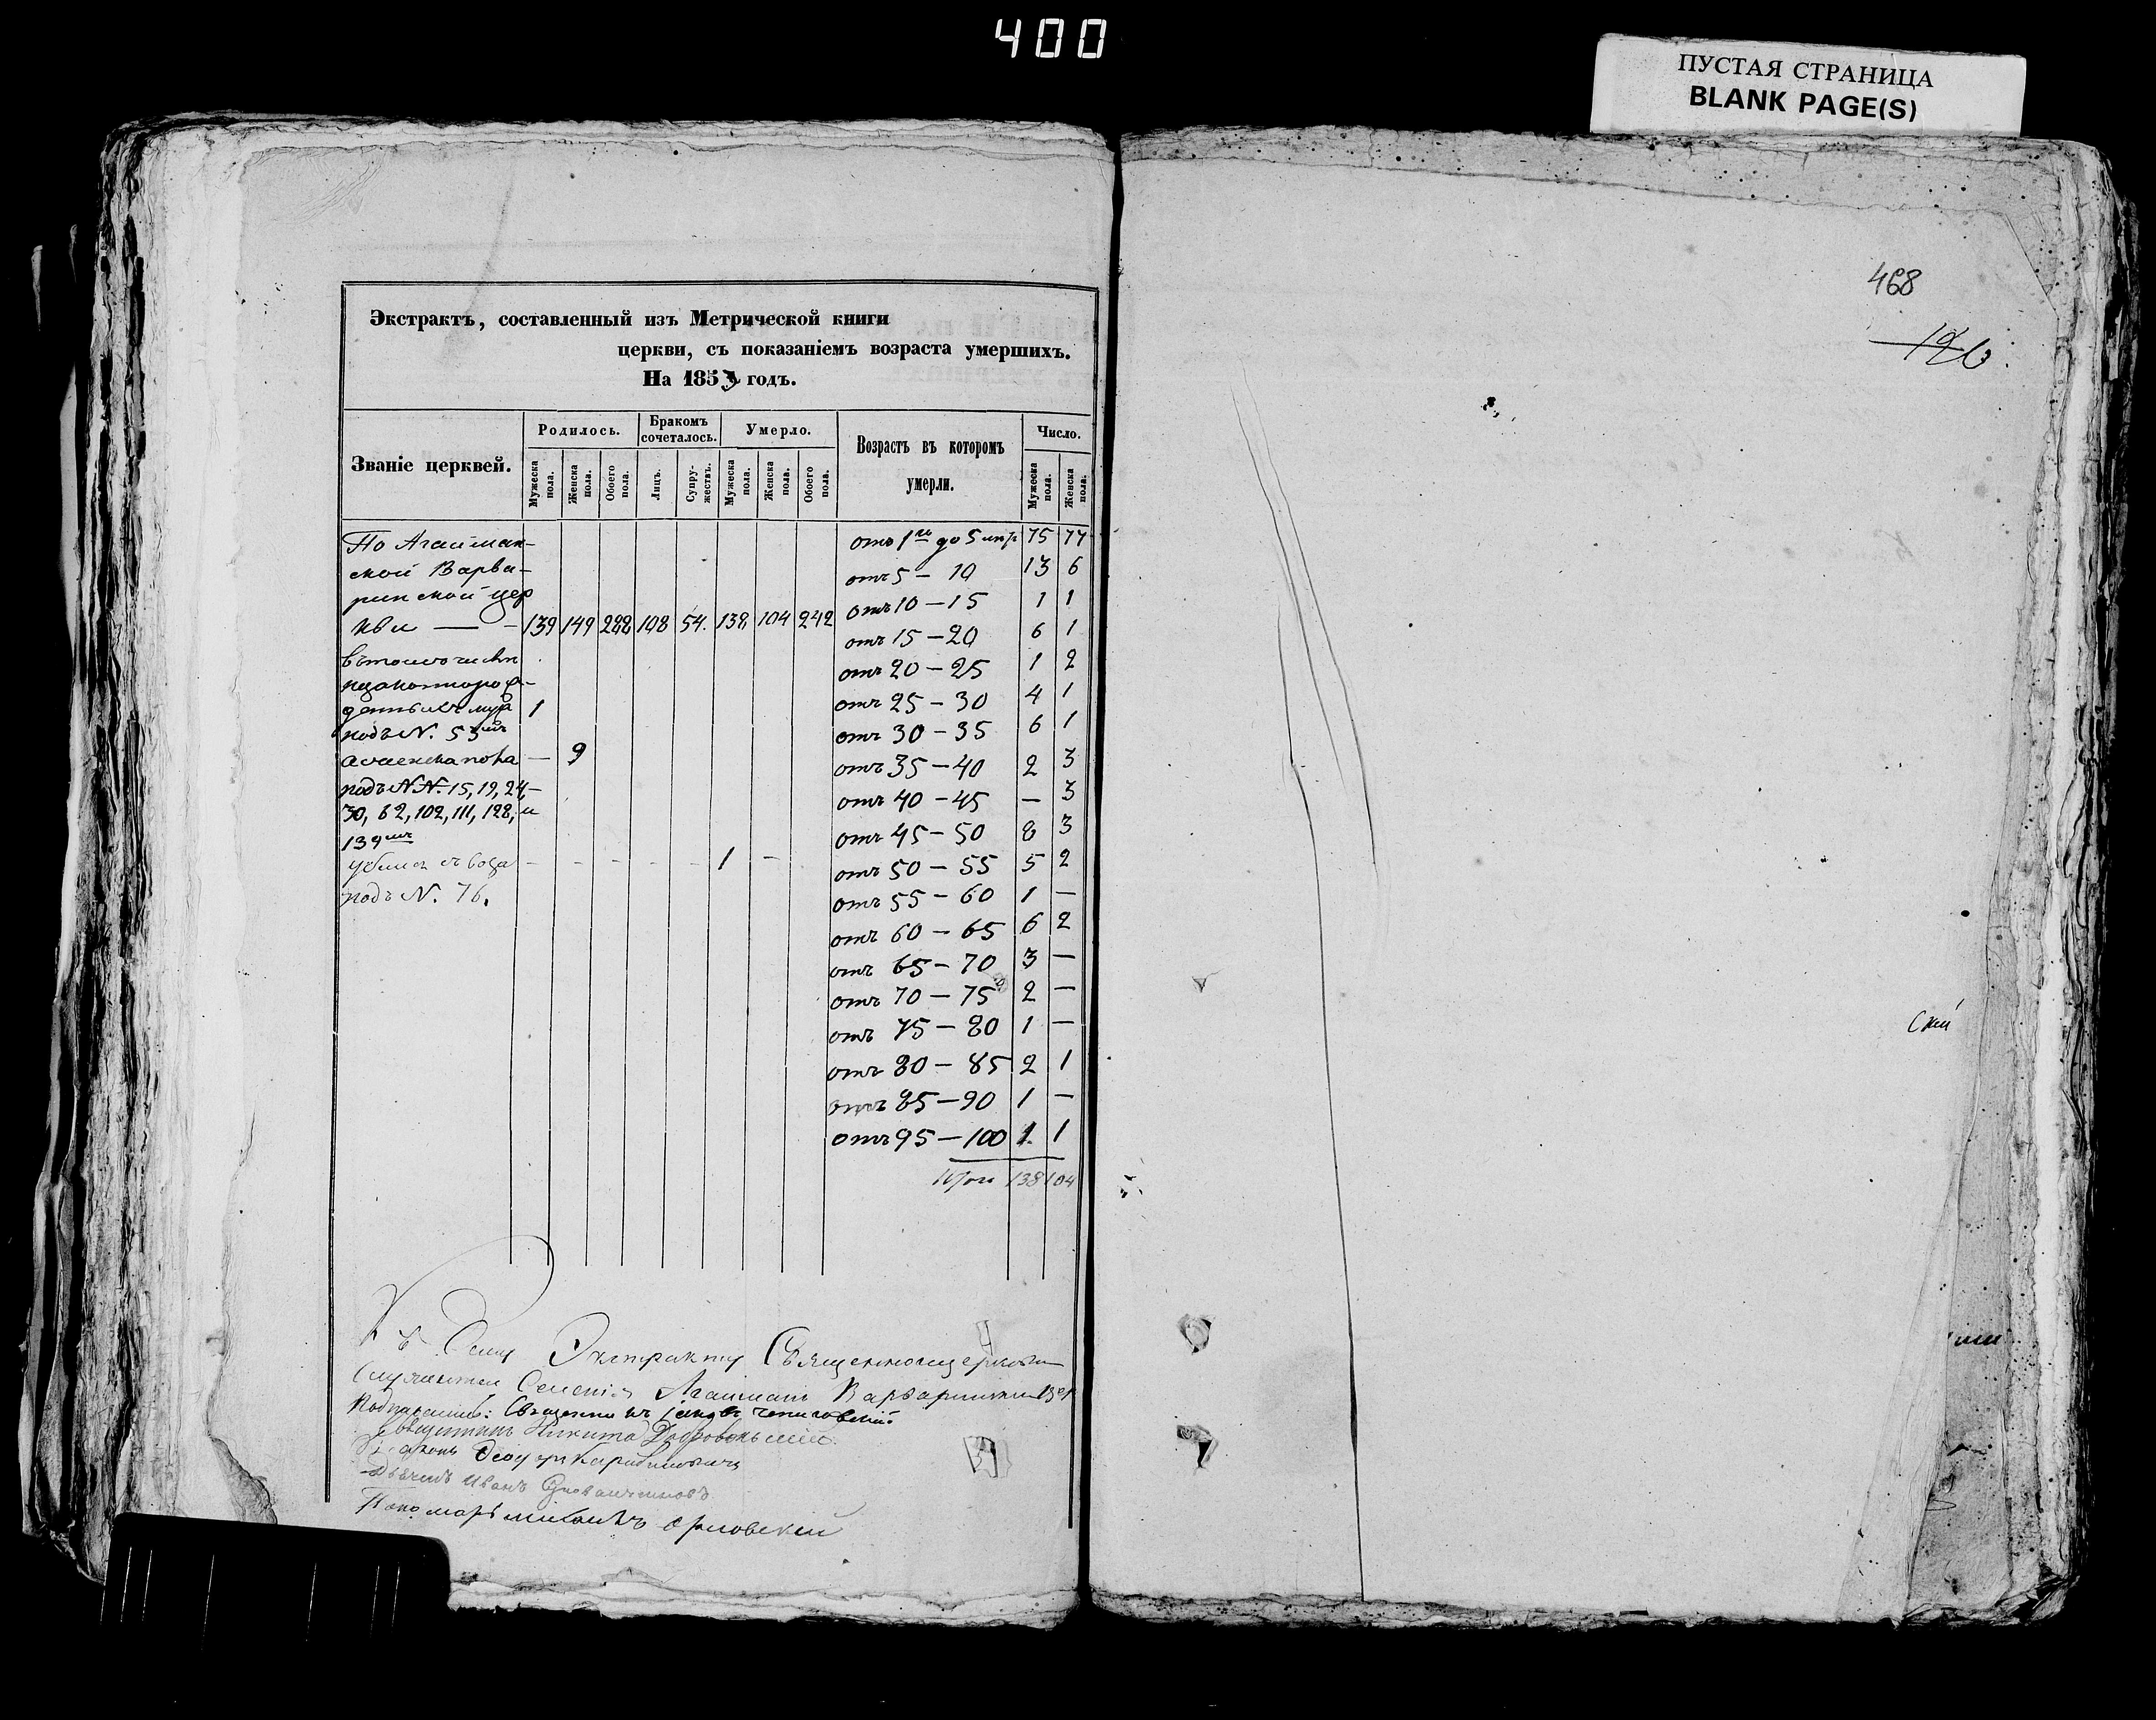 400
ПУСТАЯ СТРАНИЦА
BLANK PAGE(S)
Экстрактъ, составленный изъ Метрической книги
церкви, съ показаніемъ возраста умершихъ.
На 1853 годъ.
Званіе церквей.
Родилось.
Бракомъ сочеталось.
Умерло.
Возрастъ въ которомъ умерли.
Число.
Мужеска пола.
Женска пола.
Обоего пола.
Лицъ.
Супру-жествъ.
Мужеска пола.
Женска пола.
Обоего пола.
Мужеска пола.
Женска пола.
По Агайман-
ской Варва-
ринской цер
кви — - 139 149 288 108 54. 138 104 242
въ томъ числѣ
1
подъ N. 53мъ
а женска пола — 9
подъ N.N. 15, 19, 24,
30, 62, 102, 111, 128, и
139мъ
- - - - - 1 -
подъ N. 76.
отъ 1го до 5 75 77
отъ 5 — 10 13 6
отъ 10 — 15 1 1
отъ 15 — 20 6 1
отъ 20 — 25 1 2
отъ 25 — 30 4 1
отъ 30 — 35 6 1
отъ 35 — 40 2 3
отъ 40 — 45 — 3
отъ 45 — 50 8 3
отъ 50 — 55 5 2
отъ 55 — 60 1 —
отъ 60 — 65 6 2
отъ 65 — 70 3 —
отъ 70 — 75 2 —
отъ 75 — 80 1 —
отъ 80 — 85 2 1
отъ 85 — 90 1 —
отъ 95 — 100 1. 1
Итого 138 104
Къ Сему Экстракту Священноцерковно
Служители Селенія Агайманъ Варваринской
Священникъ Іаковъ
Священникъ Никита
Діаконъ Феодоръ
Дьячекъ Иванъ
Пономарь Михаилъ Орловскій
468
126